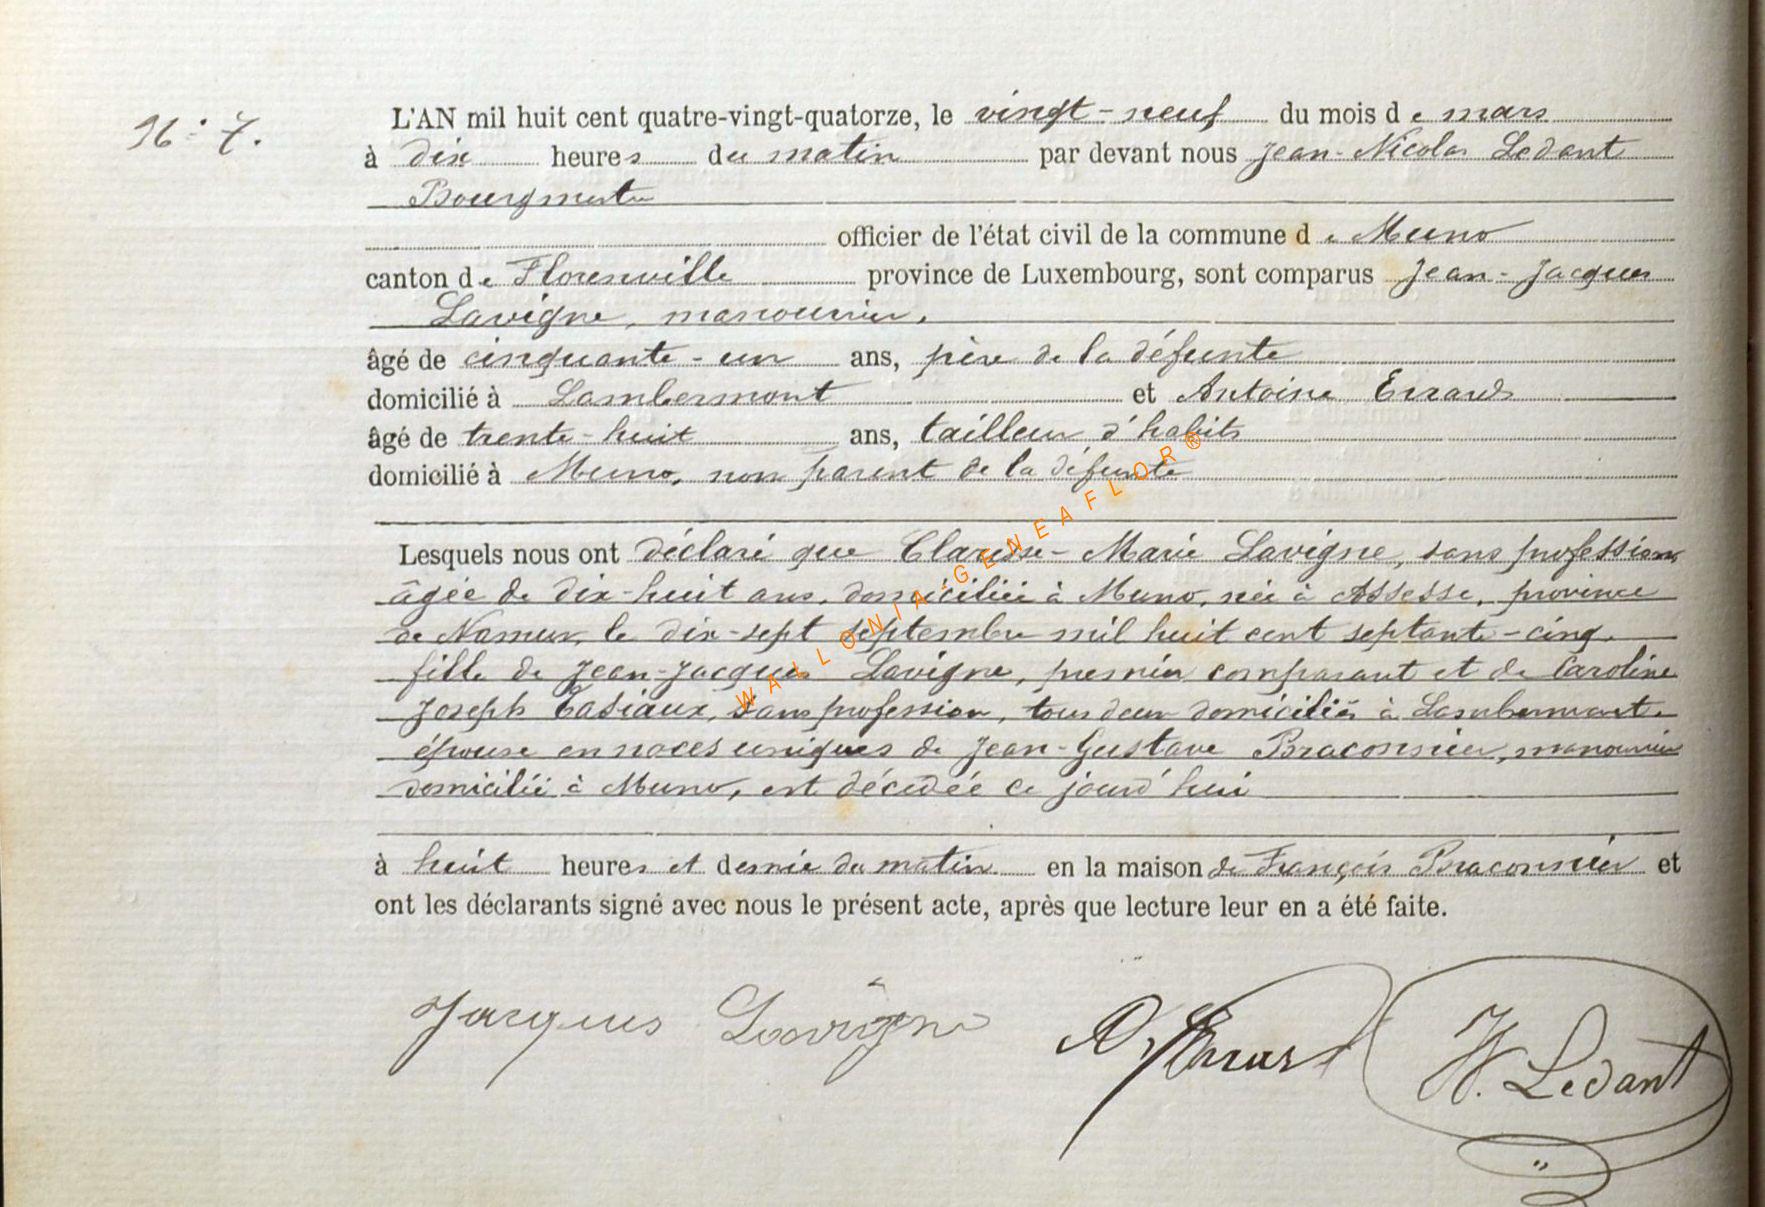 N° 7.
L'AN mil huit cent quatre-vingt-quatorze, le vingt-neuf du mois de mars
à dix heures du matin par devant nous Jean-Nicolas Ledant
Bourgmestre
officier de l'état civil de la commune de Muno
canton de Florenville province de Luxembourg, sont comparus Jean-Jacques
Lavigne, manouvrier,
âgé de cinquante-un ans, père de la défunte
domicilié à Lambermont et Antoine Errard
âgé de trente-huit ans, tailleur d'habits
domicilié à Muno, non parent de la défunte
Lesquels nous ont déclaré que Clarisse-Marie Lavigne, sans profession,
âgée de dix-huit ans, domiciliée à Muno, née à Assesse, province
de Namur, le dix-sept septembre mil huit cent septante-cinq,
fille de Jean-Jacques Lavigne, premier comparant et de Caroline
Joseph Tasiaux, sans profession, tous deux domiciliés à Lambermont,
épouse en noces uniques de Jean-Gustave Braconnier, manouvrier
domicilié à Muno, est décédée ce jourd'hui
à huit heures et demie du matin en la maison de François Braconnier et
ont les déclarants signé avec nous le présent acte, après que lecture leur en a été faite.
Jacques Lavigne A. Errard N. Ledant
WALLONIA-GENEAFLOR®